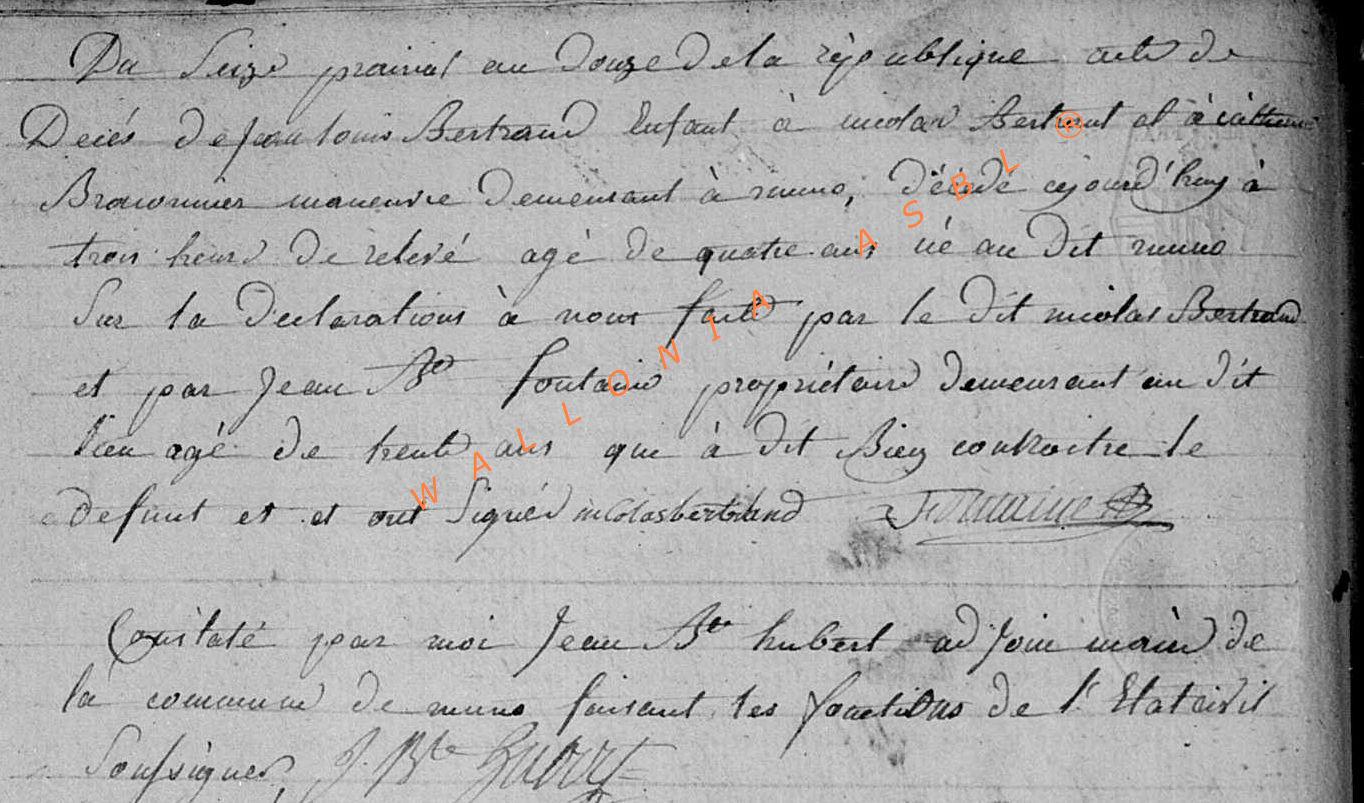 Du Seize prairial an Douze de la république acte de
Decés de Jean louis Bertrand Enfant à nicolas Bertrant et à cathrine
maneuvre demeurant à muno, décédé cejourd'huy à
trois heure de relevé agé de quatre ans né au dit muno
Sur la declarations à nous faite par le dit nicolas Bertrand
et par Jean Bte fontaine propriétaire demeurant au dit
lieu agé de trente ans qui à dit Bien controitre le
defunt et et ont Signés nicolasbertrand Fontaine
Constaté par moi Jean Bte hubert adjoin maire de
la commune de muno faisant les fonctions de l'Etatcivil
Soussigner J. Bte Hubert
WALLONIA ASBL ®